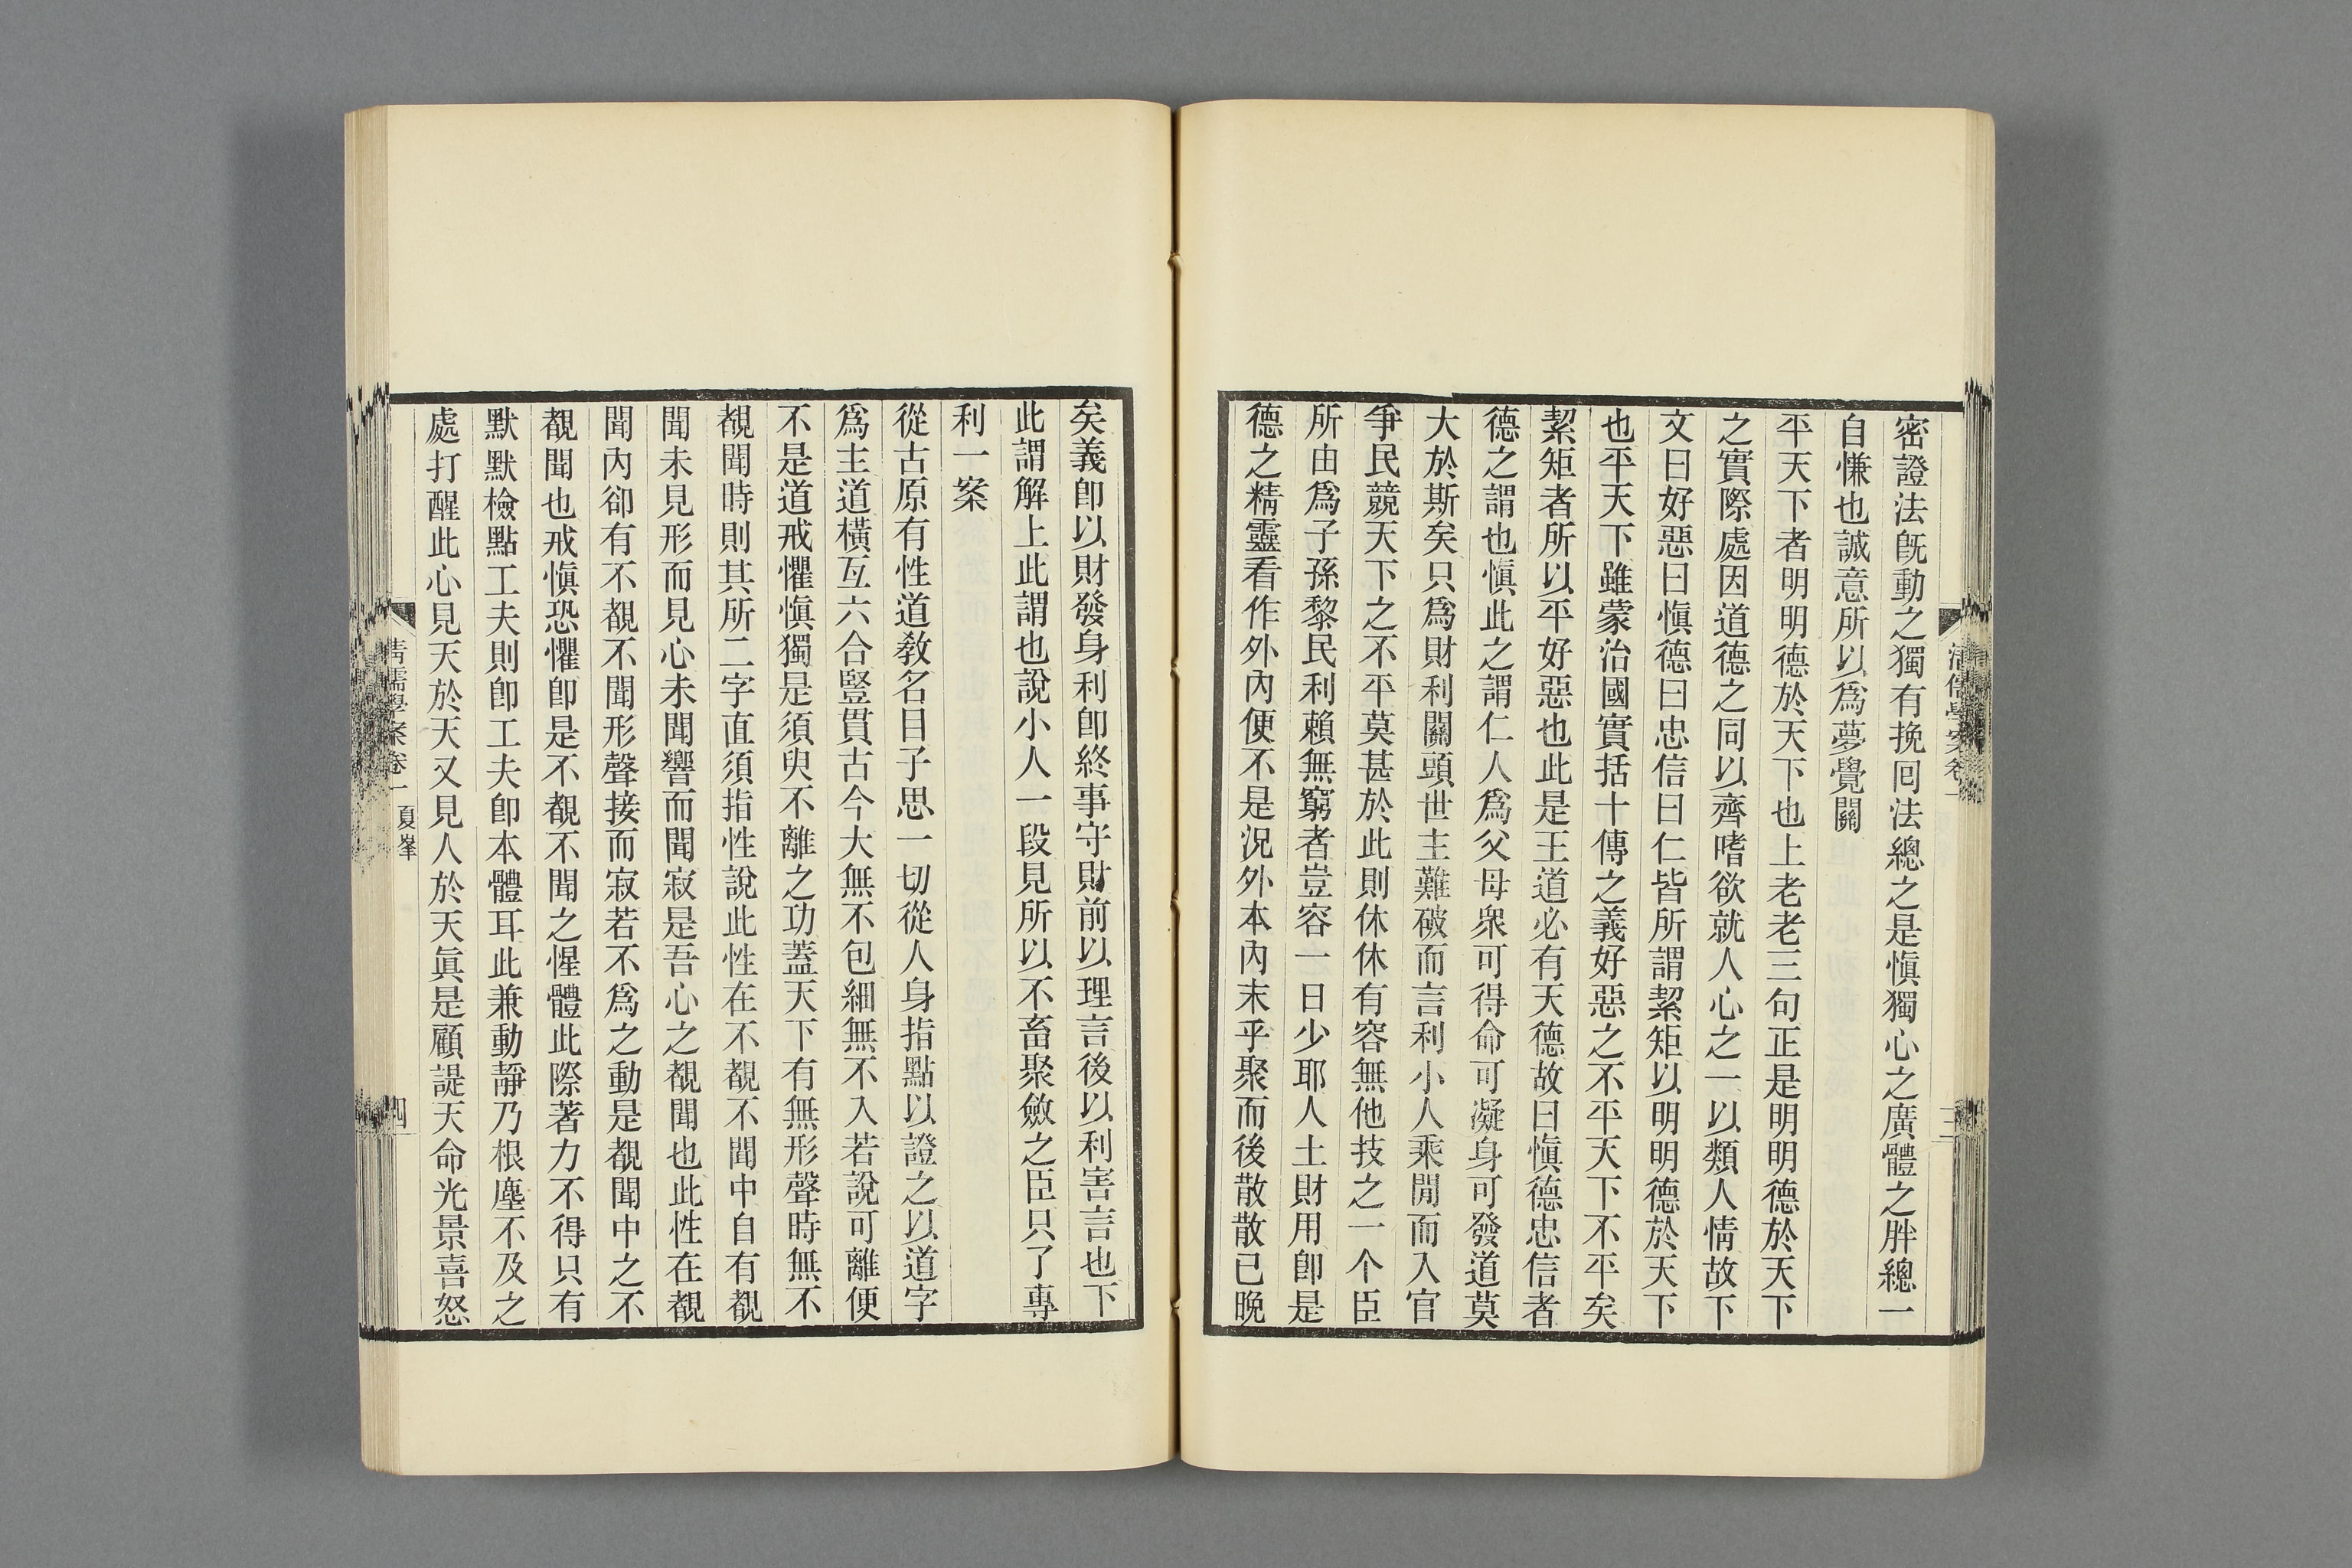 密證法旣動之獨有挽囘法總之是愼獨心之廣體之胖總一
自慊也誠意所以爲夢覺關
平天下者明明德於天下也上老老三句正是明明德於天下
之實際處因道德之同以齊嗜欲就人心之一以類人情故下
文曰好惡曰愼德曰忠信曰仁皆所謂絜矩以明明德於天下
也平天下雖蒙治國實括十傳之義好惡之不平天下不平矣
絜矩者所以平好惡也此是王道必有天德故曰愼德忠信者
德之謂也愼此之謂仁人爲父母衆可得命可凝身可發道莫
大於斯矣只爲財利關頭世主難破而言利小人乘閒而入官
爭民競天下之不平莫甚於此則休休有容無他技之一个臣
所由爲子孫黎民利賴無窮者豈容一日少耶人土財用卽是
德之精靈看作外內便不是況外本內末乎聚而後散散已晚
矣義卽以財發身利卽終事守財前以理言後以利害言也下
此謂解上此謂也說小人一段見所以不畜聚斂之臣只了專
利一案
從古原有性道敎名目子思一切從人身指點以證之以道字
爲主道橫亙六合豎貫古今大無不包細無不入若說可離便
不是道戒懼愼獨是須臾不離之功蓋天下有無形聲時無不
覩聞時則其所二字直須指性說此性在不覩不聞中自有覩
聞未見形而見心未聞響而聞寂是吾心之覩聞也此性在覩
聞內卻有不覩不聞形聲接而寂若不爲之動是覩聞中之不
覩聞也戒愼恐懼卽是不覩不聞之惺體此際著力不得只有
默默檢點工夫則卽工夫卽本體耳此兼動靜乃根塵不及之
處打醒此心見天於天又見人於天眞是顧諟天命光景喜怒
清儒學案卷一 夏峯
四
清儒學案卷一
三